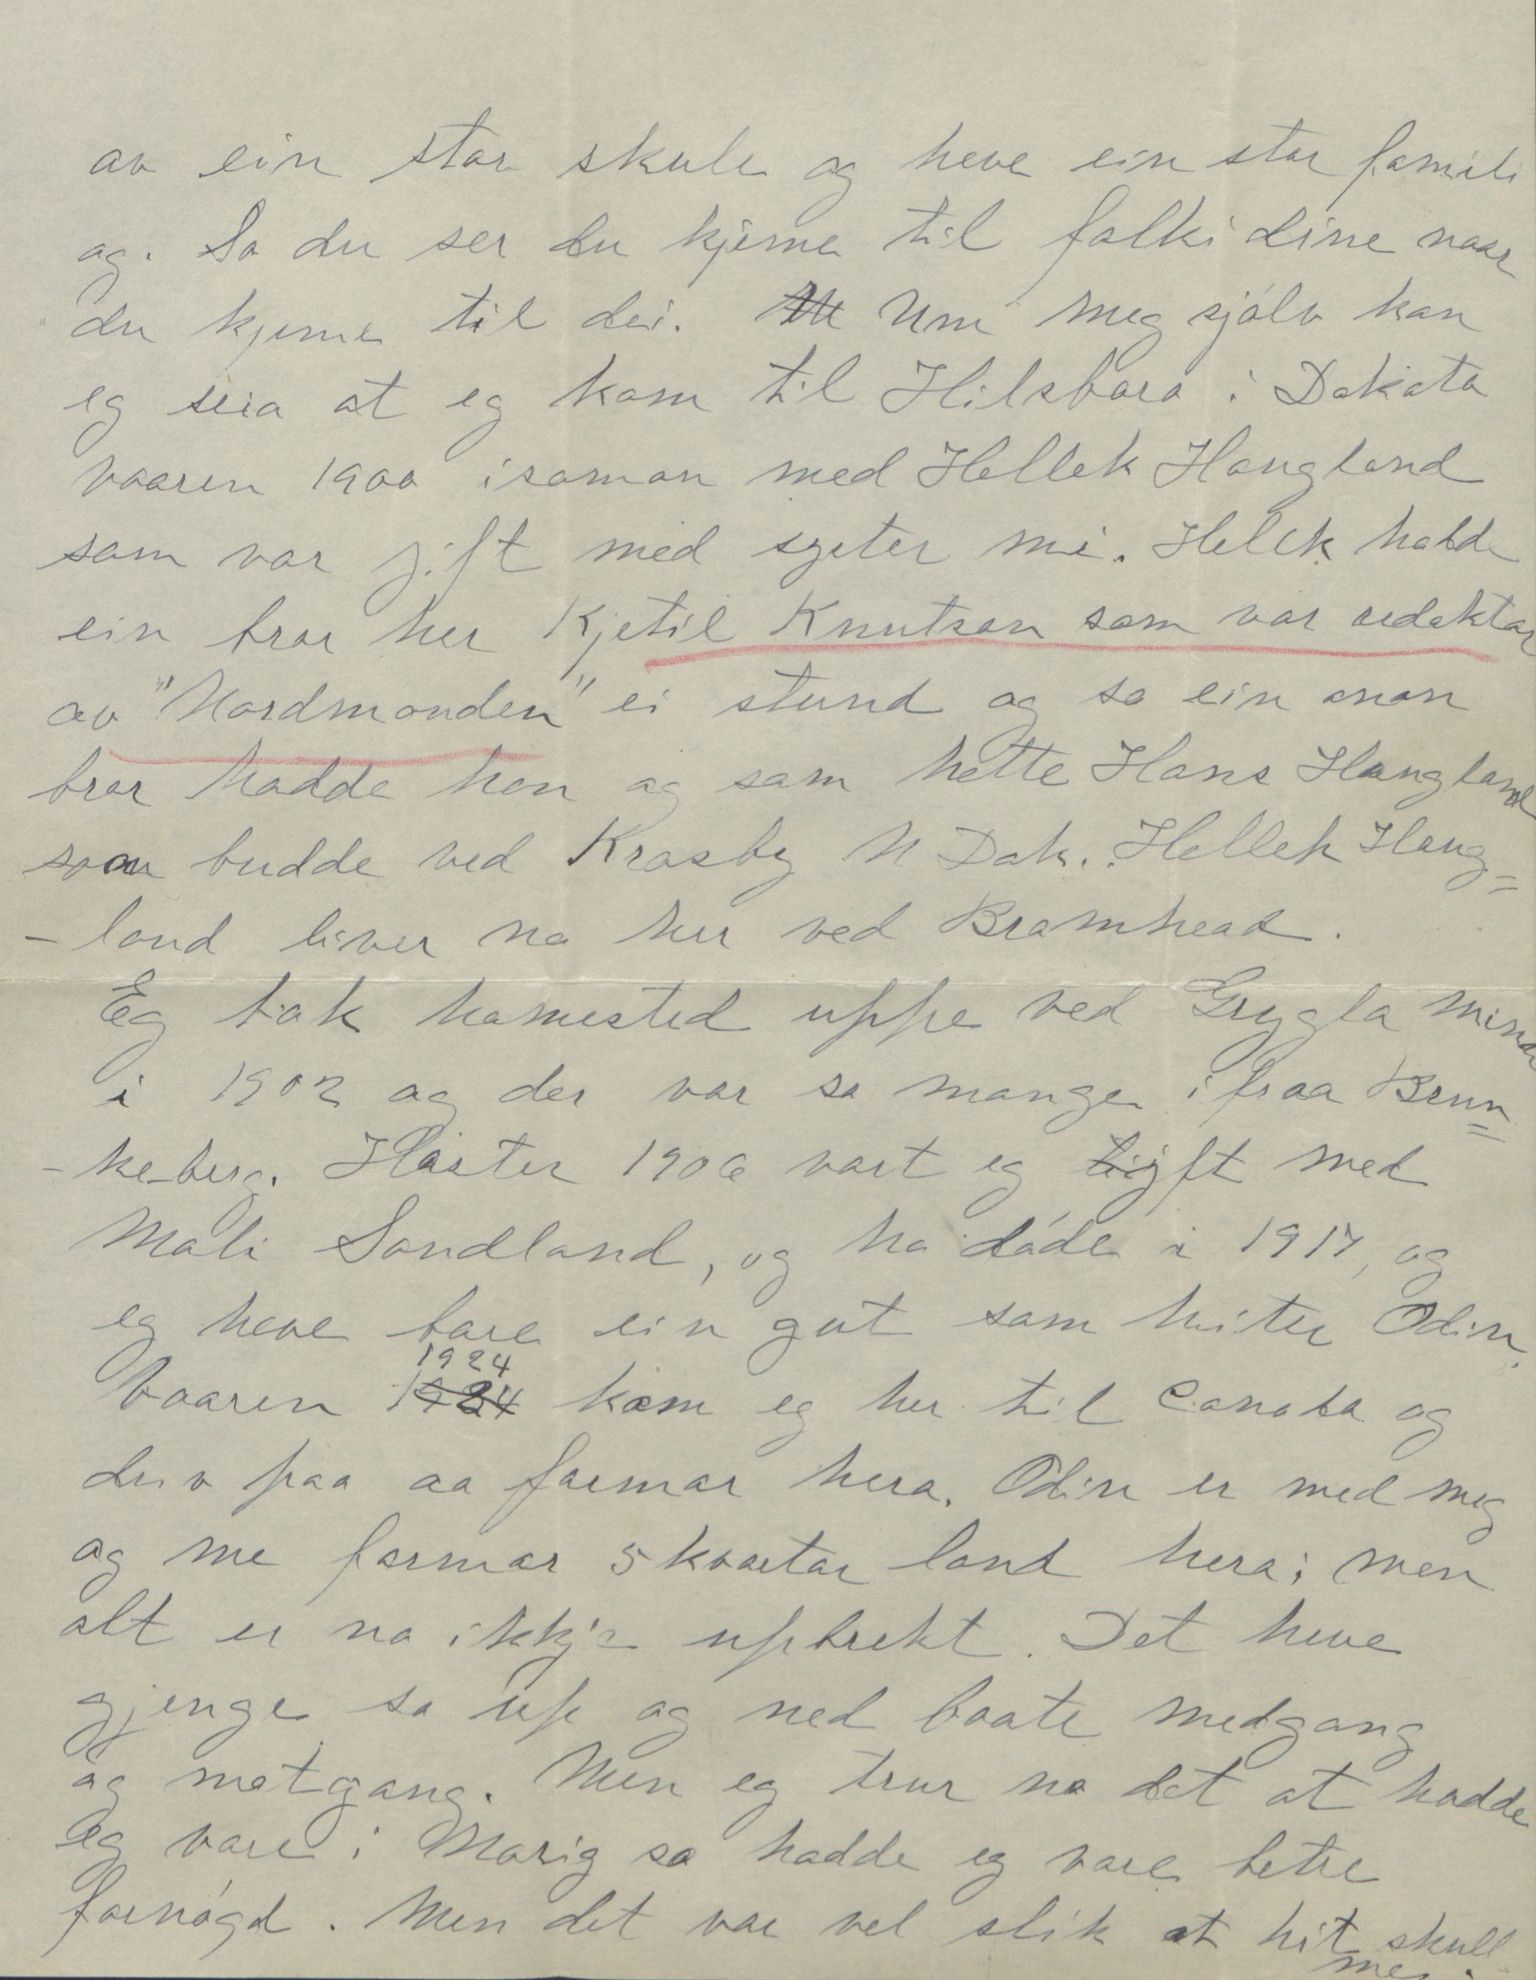 av ein stor skule og heve ein stor famili
og. So du ser du kjeme til folki dine naar
du kjeme til dei. Um meg sjólv kan
eg seia at eg kom til Hilsboro i Dakota
vaaren 1900 isaman med Hellek Haugland
som var jift med syster mi. Helek hadde
ein bror her Kjetil Knutson som var redaktor
av "Nordmanden" ei stund og so ein anan
bror hadde han og som hette Hans Haugland
som budde ved Krosby N Dak. Hellek Haug=
-land liver no her ved Bromhead.
Eg tok homested uppe ved Grygla Minn
i 1902 og der var so mange ifraa Brun=
-keberg. Hósten 1906 vart eg jift med
Mali Sandland, og ho dóde i 1917, og
eg heve bare ein gut som heiter Odin.
Vaaren 1924 kom eg her til Canada og
driv paa aa farmar hera. Odin er med meg
og me farmar 5 kvartar land hera; men
alt er no ikkje upbrekt. Det heve
gjenge so up og ned baate medgang
og motgang. Men eg trur no det at hadde
eg vore i Norig so hadde eg vore betre
fornógd. Men det var vel slik at hit skull
me